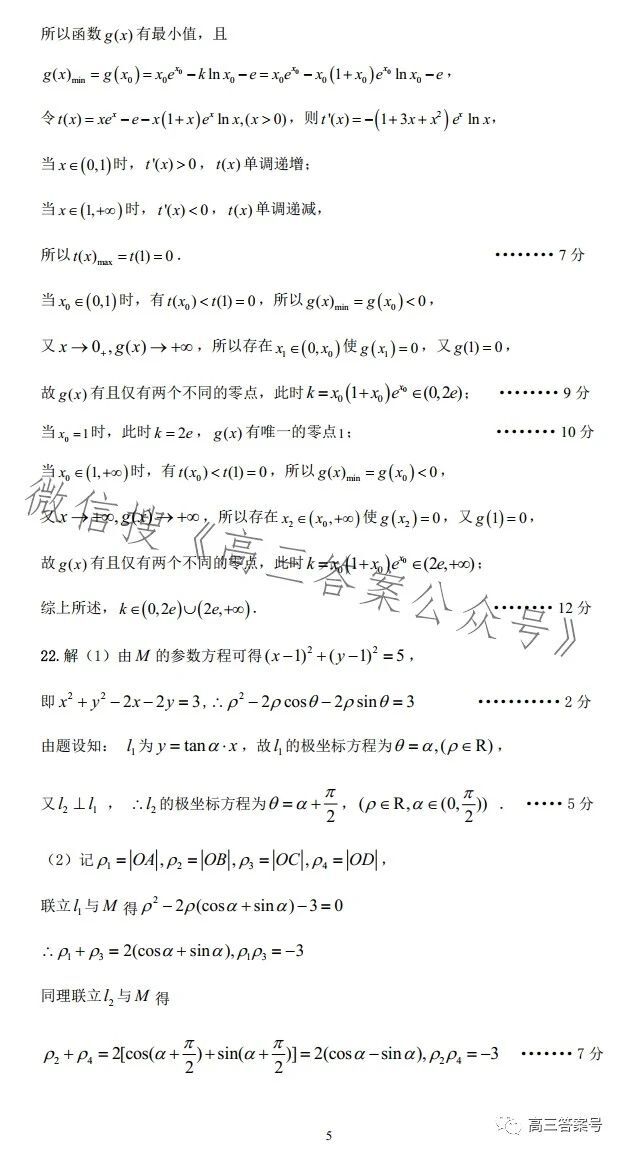 所以函数 g(x) 有最小值，且
g(x)min = g(x₀) = x₀e^{x₀} − k ln x₀ − e = x₀e^{x₀} − x₀(1+x₀)e^{x₀} ln x₀ − e，
令 t(x) = xe^x − e − x(1+x)e^x ln x,(x>0)，则 t'(x) = −(1+3x+x²)e^x ln x，
当 x∈(0,1) 时，t'(x)>0，t(x) 单调递增；
当 x∈(1,+∞) 时，t'(x)<0，t(x) 单调递减，
所以 t(x)max = t(1) = 0． ········ 7 分
当 x₀∈(0,1) 时，有 t(x₀)<t(1)=0，所以 g(x)min = g(x₀)<0，
又 x→0₊, g(x)→+∞，所以存在 x₁∈(0,x₀) 使 g(x₁)=0，又 g(1)=0，
故 g(x) 有且仅有两个不同的零点，此时 k=x₀(1+x₀)e^{x₀}∈(0,2e)； ········ 9 分
当 x₀=1 时，此时 k=2e，g(x) 有唯一的零点1； ········ 10 分
当 x₀∈(1,+∞) 时，有 t(x₀)<t(1)=0，所以 g(x)min = g(x₀)<0，
又 x→+∞, g(x)→+∞，所以存在 x₂∈(x₀,+∞) 使 g(x₂)=0，又 g(1)=0，
故 g(x) 有且仅有两个不同的零点，此时 k=x₀(1+x₀)e^{x₀}∈(2e,+∞)；
综上所述，k∈(0,2e)∪(2e,+∞)． ········ 12 分
微信搜《高三答案公众号》
22.解（1）由 M 的参数方程可得 (x−1)²+(y−1)²=5，
即 x²+y²−2x−2y=3，∴ρ²−2ρcosθ−2ρsinθ=3 ··········· 2 分
由题设知： l₁ 为 y=tanα·x，故 l₁ 的极坐标方程为 θ=α,(ρ∈R)，
又 l₂⊥l₁ ， ∴l₂ 的极坐标方程为 θ=α+π/2，(ρ∈R,α∈(0,π/2)) ． ····· 5 分
（2）记 ρ₁=|OA|,ρ₂=|OB|,ρ₃=|OC|,ρ₄=|OD|，
联立 l₁ 与 M 得 ρ²−2ρ(cosα+sinα)−3=0
∴ρ₁+ρ₃=2(cosα+sinα),ρ₁ρ₃=−3
同理联立 l₂ 与 M 得
ρ₂+ρ₄=2[cos(α+π/2)+sin(α+π/2)]=2(cosα−sinα),ρ₂ρ₄=−3 ······· 7 分
高三答案号
5